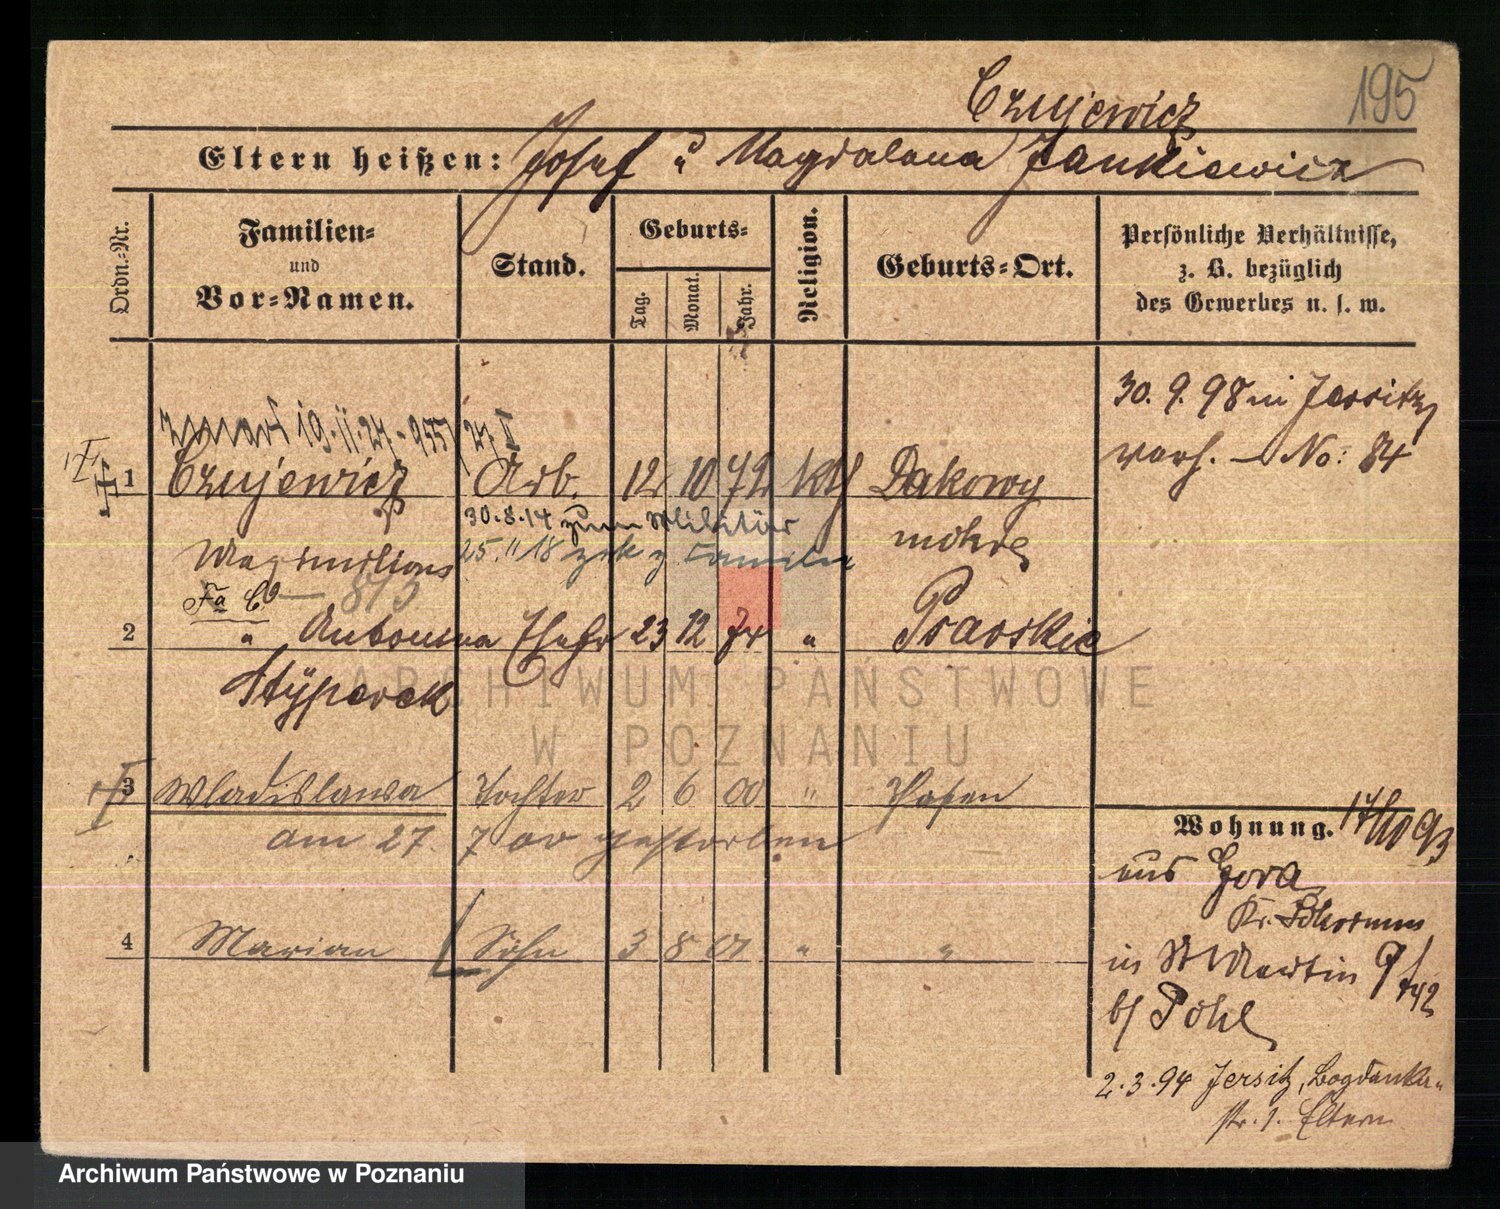 Czujewicz
195
Eltern heißen: Josef u Magdalena Jankiewicz
Ordn.-Nr.
Familien-
und
Vor-Namen.
Stand.
Geburts-
Tag.
Monat.
Jahr.
Religion.
Geburts-Ort.
Persönliche Verhältnisse,
z. B. bezüglich
des Gewerbes u. s. w.
30. 9. 98 in Jersitz
No: 84
zmarł 19.II.27.
1 Czujewicz Arb. 12 10 72 kth Dakowy
30.8.14 zum Militär
mokre
25. 11 18 z Familie
2 " Antonina Ehefr 23 12 " Psarskie
Styperek
3 Wladislawa Tochter 2 6 00 " Posen
am 27. 7 00 gestorben
4 Marian Sohn 3 8 01 " "
Wohnung. 17/10 93
aus Gora
Kr. Schrimm
in St Martin
b/ Pohl
2.3.94 Jersitz, Bogdanka-
str. 1. Eltern
ARCHIWUM PAŃSTWOWE
W POZNANIU
Archiwum Państwowe w Poznaniu